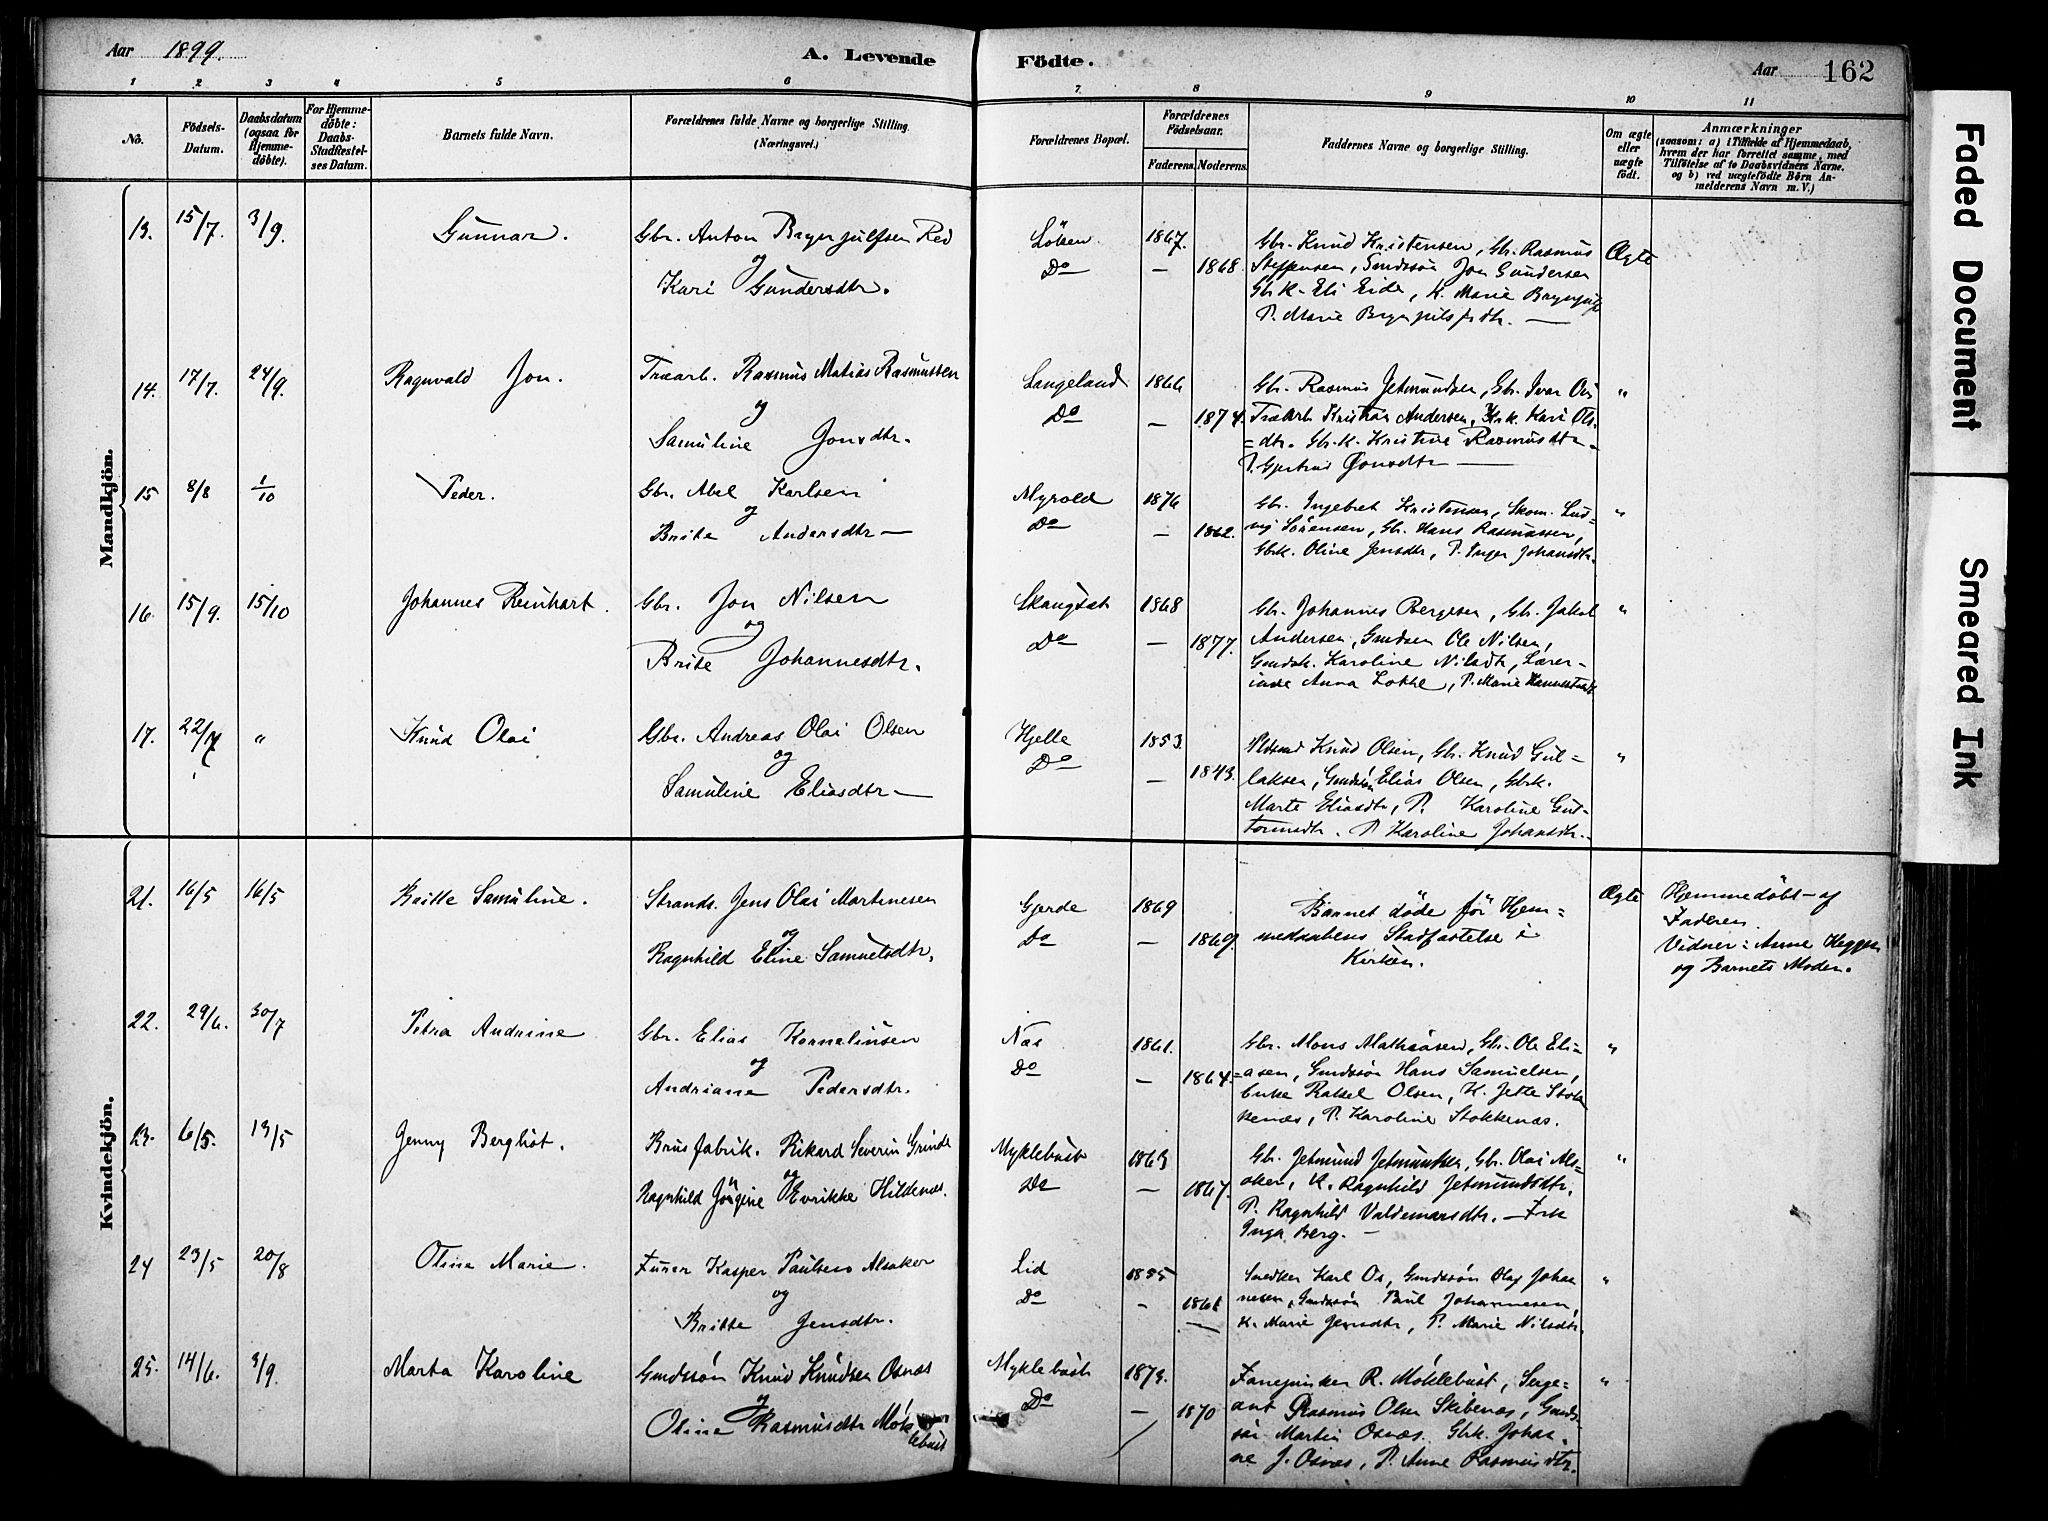 Aar 1899.
A. Levende Födte.
Aar 162
1 2 3 4 5 6 7 8 9 10 11
No.
Födsels-Datum.
Daabsdatum (ogsaa for Hjemmedöbte).
For Hjemmedöbte: Daabs-Stadfæstelses Datum.
Barnets fulde Navn.
Forældrenes fulde Navne og borgerlige Stilling. (Næringsvei.)
Forældrenes Bopæl.
Forældrenes Födselsaar.
Faderens. Moderens.
Faddernes Navne og borgerlige Stilling.
Om ægte eller uægte født.
Anmærkninger
(saasom: a) i Tilfælde af Hjemmedaab, hvem der har forrettet samme, med Tilföielse af to Daabsvidners Navne, og b) ved uægtefödte Börn Anmelderens Navn m. V.)
Mandkjön.
13. 15/7. 3/9. Gunnar. Gbr. Anton Brynjulfsen Red
og
Kari Gundersdtr.
Løken. 1867.
Do — 1868.
Gbr. Knud Kristensen, Gbr. Rasmus
Steffensen, Gmdssøn Jon Gundersen
Gbrk. Eli Eide, K. Marie Brynjulfs
P. Marie Brynjulfsdtr. —
Ægte
14. 17/7. 24/9. Ragnvald Jon. Træarb. Rasmus Matias Rasmussen
og
Samuline Jonsdtr.
Langeland 1866
Do — 1874.
Gbr. Rasmus Jetmundsen, Gbr. Ivar Os
Træarb. Kristian Andersen, Gbrk. Kari Ols-
=dtr. Gbr.K. Kristine Rasmusdtr.
P. Gjertrud Jonsdtr —
"
15 8/8 1/10 Peder. Gbr. Abel Karlsen
og
Brite Andersdtr —
Myrold 1876
Do — 1862.
Gbr. Ingebret Kristensen, Skom. Lud-
vig Sørensen, Gbr. Hans Rasmussen,
Gbrk. Oline Jensdtr, P. Inger Johansdtr.
"
16. 15/9. 15/10 Johannes Reinhart. Gbr. Jon Nilsen
og
Brite Johannesdtr.
Skaugset 1868
Do — 1877.
Gbr. Johannes Bergesen, Gbr. Jakob
Andersen, Gmdsøn Ole Nilsen,
Gmdsk. Karoline Nilsdtr, Lærer-
inde Anna Lothe, P. Marie
"
17. 22/7 " Knud Olai Gbr. Andreas Olai Olsen
og
Samuline Eliasdtr —
Hjelle 1853.
Do — 1843.
Knud Olsen, Gbr. Knud Gul-
laksen, Gmdssøn Elias Olsen, Gbrk.
Marte Eliasdtr, P. Karoline Gut-
tormsdtr. P Karoline Johansdtr.
"
Kvindekjön.
21. 16/5 16/5 Britte Samuline. Strands. Jens Olai Martinesen
og
Ragnhild Eline Samuelsdtr.
Gjerde 1869
Do — 1869.
Barnet døde før Hjem-
medaabens Stadfæstelse i
Kirken.
Ægte
Hjemmedøbt af
Faderen.
Vidner: Anne Heggen
og Barnets Moder.
22. 29/6. 30/7 Petra Andrine Gbr. Elias Kornelinsen
og
Andriane Pedersdtr.
Næs 1861.
Do — 1864.
Gbr. Mons Mathiasen, Gbr. Ole Eli-
=asen, Gmdssøn Hans Samuelsen,
Enke Rakel Olsen, K. Jette Stok
kenæs, P. Karoline Stokkenæs.
"
23. 6/5. 13/5 Jenny Bergliot. Brusfabrik. Rikard Severin Grinde
og
Ragnhild Jørgine Enrikke Hildenæs.
Myklebust 1863
Do — 1867.
Gbr. Jetmund Jetmundsen, Gbr. Olai Als-
aker, K. Ragnhild Jetmundsdtr.
P. Ragnhild Valdemarsdtr. — Frk
Inga Berg. —
"
24 23/5 20/8 Olina Marie. Furer Kasper Paulsen Alsaker
og
Britte Jensdtr.
Lid 1855
Do — 1861
Snedker Karl Os, Gmdssøn Olaf Johan
nesen, Gmdssøn Paul Johannesen,
K. Marie Jensdtr, P. Marie Nilsdtr.
"
25. 14/6. 3/9. Marta Karoline Gmdssøn Knud Knudsen Osnæs
og
Oline Rasmusdtr Møk
lebust
Myklebust 1873.
Do — 1870
Fanejunker R. Møklebust, Serge-
ant Rasmus Olsen Skibenæs, Gmds-
søn Martin Osnæs. Gbk. Johan-
ne J. Osnæs, P. Anne Rasmusdtr.
"
Faded Document
Smeared Ink